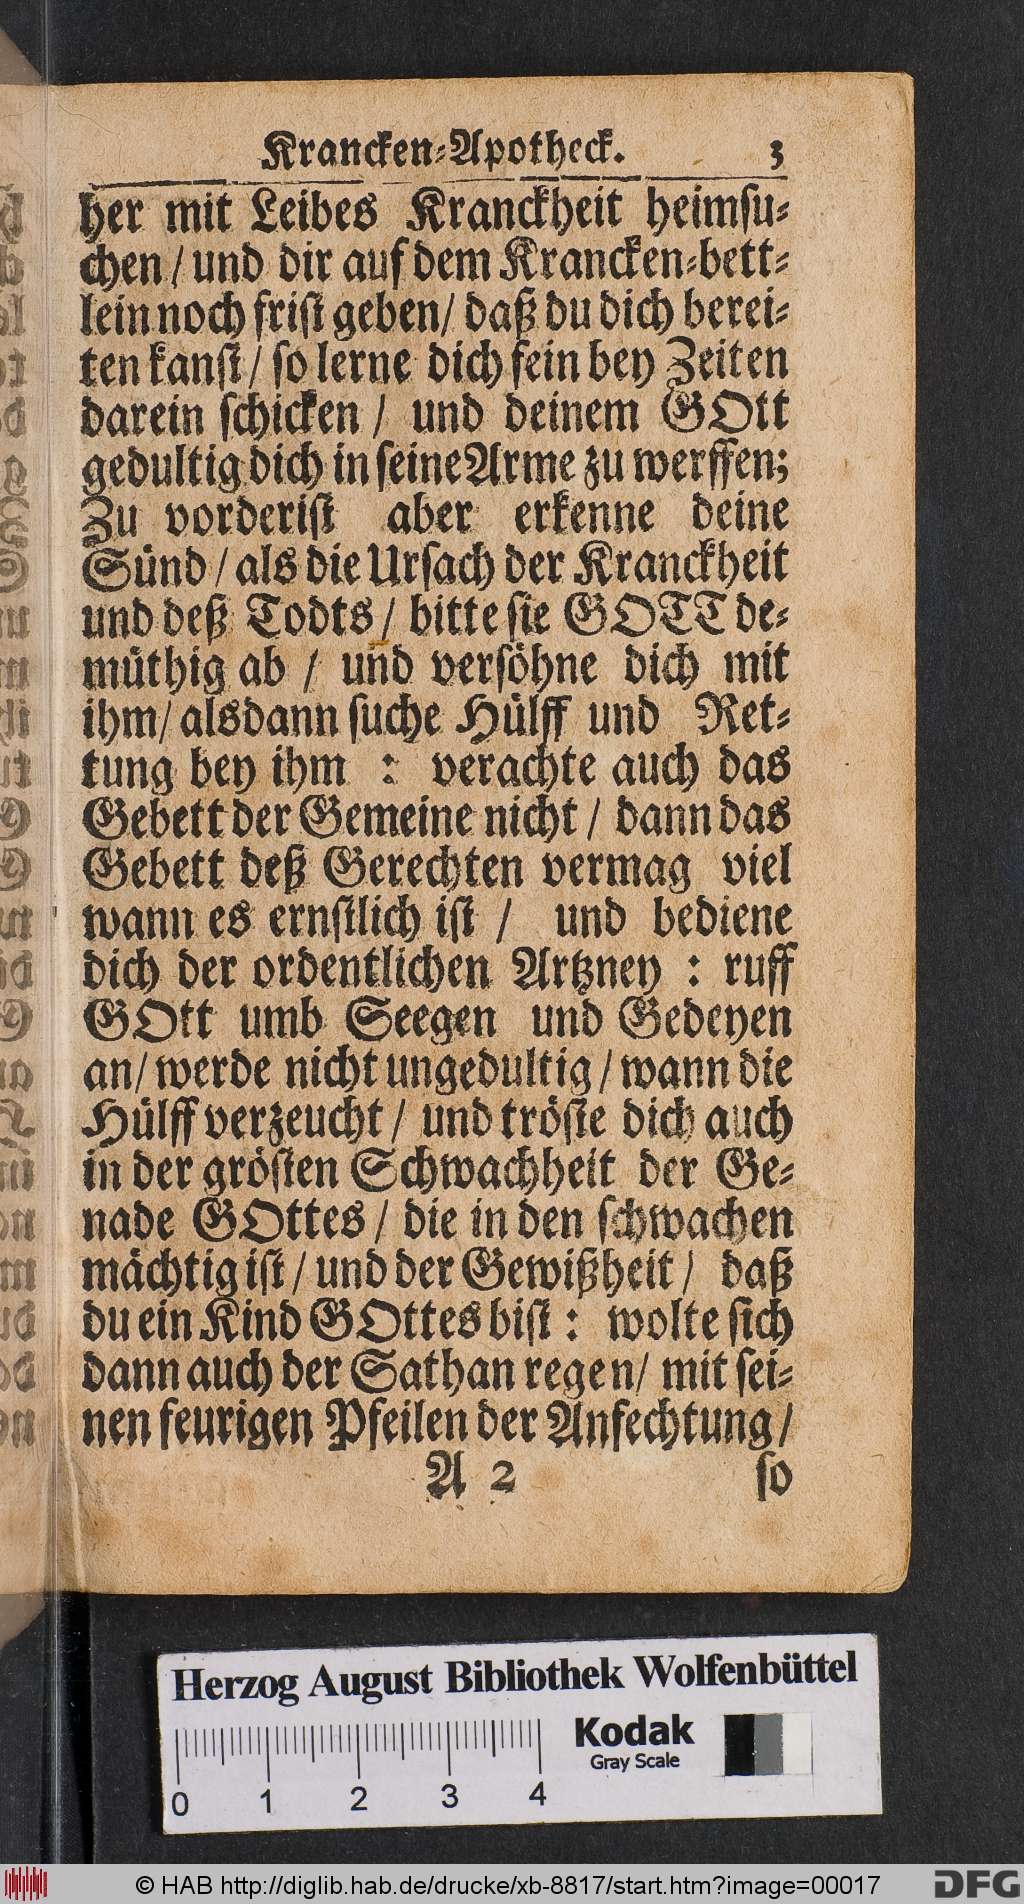 Krancken-Apotheck. 3
her mit Leibes Kranckheit heimsu-
chen / und dir auf dem Krancken-bett-
lein noch frist geben / daß du dich berei-
ten kanst / so lerne dich fein bey Zeiten
darein schicken / und deinem GOtt
gedultig dich in seine Arme zu werffen;
Zu vorderist aber erkenne deine
Sünd / als die Ursach der Kranckheit
und deß Todts / bitte sie GOTT de-
müthig ab / und versöhne dich mit
ihm / alsdann suche Hülff und Ret-
tung bey ihm : verachte auch das
Gebett der Gemeine nicht / dann das
Gebett deß Gerechten vermag viel
wann es ernstlich ist / und bediene
dich der ordentlichen Artzney : ruff
GOtt umb Seegen und Gedeyen
an / werde nicht ungedultig / wann die
Hülff verzeucht / und tröste dich auch
in der grösten Schwachheit der Ge-
nade GOttes / die in den schwachen
mächtig ist / und der Gewißheit / daß
du ein Kind GOttes bist : wolte sich
dann auch der Sathan regen / mit sei-
nen feurigen Pfeilen der Anfechtung /
A 2 so
Herzog August Bibliothek Wolfenbüttel
Kodak
Gray Scale
0 1 2 3 4
© HAB http://diglib.hab.de/drucke/xb-8817/start.htm?image=00017
DFG